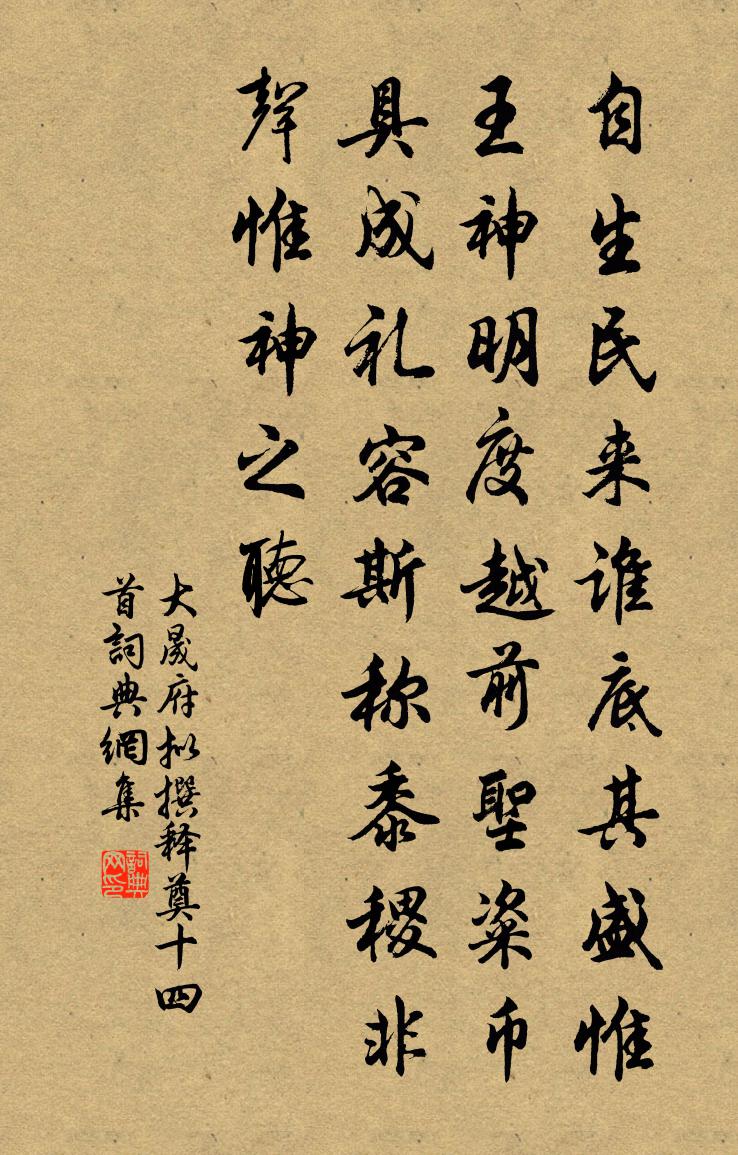 自生民来谁底其盛惟
王神明度越前聖粢币
具成礼容斯称黍稷非
聲惟神之聽
大晟府拟撰释奠十四
首詞典網集
詞典网印